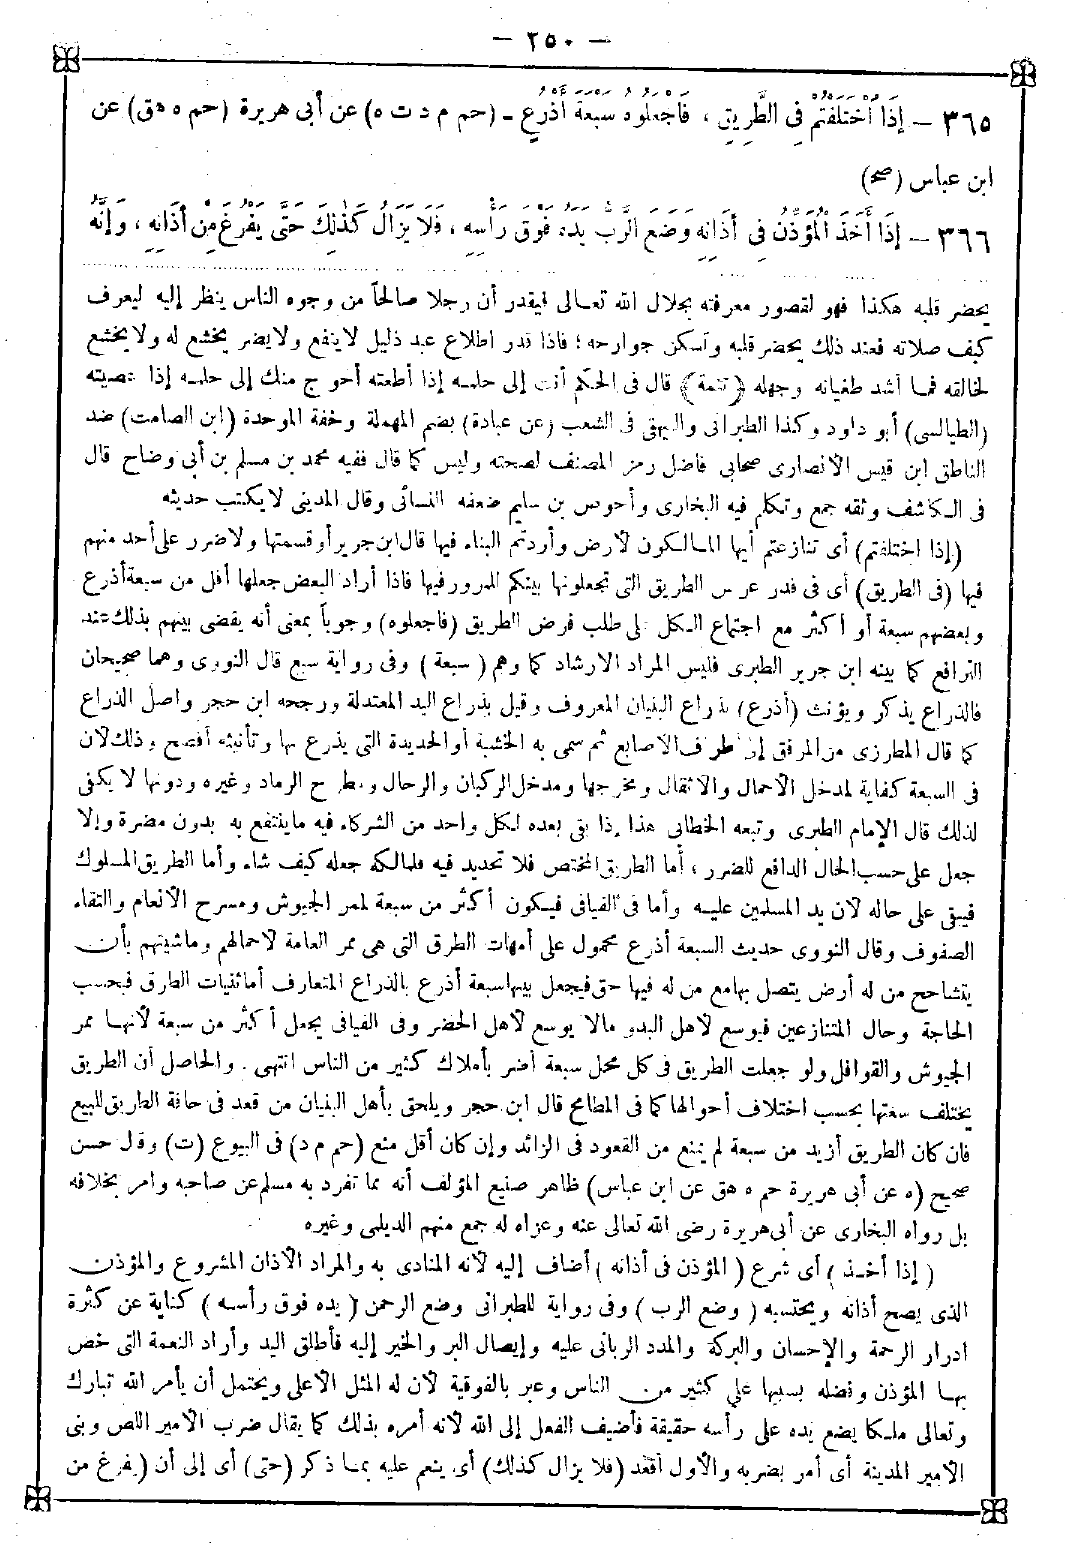 — ٢٥٠ —
٣٦٥ — إِذَا اخْتَلَفْتُمْ فِي الطَّرِيقِ ، فَاجْعَلُوهُ سَبْعَةَ أَذْرُعٍ - (حم م د ت ه) عن أبى هريرة (حم ه هق) عن
ابن عباس (صح)
٣٦٦ — إِذَا أَخَذَ الْمُؤَذِّنُ فِي أَذَانِهِ وَضَعَ الرَّبُّ يَدَهُ فَوْقَ رَأْسِهِ ، فَلَا يَزَالُ كَذٰلِكَ حَتَّى يَفْرُغَ مِنْ أَذَانِهِ ، وَإِنَّهُ
يحضر قلبه هكذا فهو لقصور معرفته بجلال الله تعالى فيقدر أن رجلا صالحاً من وجوه الناس ينظر إليه ليعرف
كيف صلاته فعند ذلك يحضر قلبه وتسكن جوارحه ؛ فاذا قدر اطلاع عبد ذليل لاينفع ولايضر يخشع له ولايخشع
لخالقه فما أشد طغيانه وجهله (تتمة) قال فى الحكم أنت إلى حلمه إذا أطعته أحوج منك إلى حلمه إذا عصيته
(الطيالسى) أبو داود وكذا الطبرانى والبيهقى فى الشعب (عن عبادة) بضم المهملة وخفة الموحدة (ابن الصامت) ضد
الناطق ابن قيس الأنصارى صحابى فاضل رمز المصنف لصحته وليس كما قال ففيه محمد بن مسلم بن أبى وضاح قال
فى الكاشف وثقه جمع وتكلم فيه البخارى وأحوص بن سليم ضعفه النسائى وقال المدينى لا يكتب حديثه
(إذا اختلفتم) أى تنازعتم أيها المالكون لأرض وأردتم البناء فيها قال ابن جرير أو قسمتها ولاضرر على أحد منهم
فيها (فى الطريق) أى فى قدر عرض الطريق التى تجعلونها بينكم للمرور فيها فاذا أراد البعض جعلها أقل من سبعة أذرع
وبعضهم سبعة أو أكثر مع اجتماع الكل على طلب فرض الطريق (فاجعلوه) وجوباً بمعنى أنه يقضى بينهم بذلك عند
الترافع كما بينه ابن جرير الطبرى فليس المراد الارشاد كما وهم (سبعة) وفى رواية سبع قال النووى وهما صحيحان
فالذراع يذكر ويؤنث (أذرع) بذراع البنيان المعروف وقيل بذراع اليد المعتدلة ورجحه ابن حجر وأصل الذراع
كما قال المطرزى من المرفق إلى طرف الأصابع ثم سمى به الخشبة أو الحديدة التى يذرع بها وتأنيثه أفصح وذلك لأن
فى السبعة كفاية لمدخل الأحمال والأثقال ومخرجها ومدخل الركبان والرحال ومطرح الرماد وغيره ودونها لا يكفى
لذلك قال الإمام الطبرى وتبعه الخطابى هذا إذا بقى بعده لكل واحد من الشركاء فيه ما ينتفع به بدون مضرة وإلا
جعل على حسب الحال الدافع للضرر ، أما الطريق المختص فلا تحديد فيه فلمالكه جعله كيف شاء وأما الطريق المسلوك
فيبقى على حاله لأن يد المسلمين عليه وأما فى الفيافى فيكون أكثر من سبعة لممر الجيوش ومسرح الأنعام والتقاء
الصفوف وقال النووى حديث السبعة أذرع محمول على أمهات الطرق التى هى ممر العامة لأحمالهم وماشيتهم بأن
يتشاحح من له أرض يتصل بها مع من له فيها حق فيجعل بينها سبعة أذرع بالذراع المتعارف أما ثنيات الطرق فبحسب
الحاجة وحال المتنازعين فيوسع لأهل البدو مالا يوسع لأهل الحضر وفى الفيافى يجعل أكثر من سبعة لأنها ممر
الجيوش والقوافل ولو جعلت الطريق فى كل محل سبعة أضر بأملاك كثير من الناس انتهى . والحاصل أن الطريق
يختلف سعتها بحسب اختلاف أحوالها كما فى المطامح قال ابن حجر ويلحق بأهل البنيان من قعد فى حافة الطريق للبيع
فان كان الطريق أزيد من سبعة لم يمنع من القعود فى الزائد وإن كان أقل منع (حم م د) فى البيوع (ت) وقال حسن
صحيح (ه عن أبى هريرة حم ه هق عن ابن عباس) ظاهر صنيع المؤلف أنه مما تفرد به مسلم عن صاحبه وامر بخلافه
بل رواه البخارى عن أبى هريرة رضى الله تعالى عنه وعزاه له جمع منهم الديلمى وغيره
(إذا أخذ) أى شرع (المؤذن فى أذانه) أضاف إليه لأنه المنادى به والمراد الأذان المشروع والمؤذن
الذى يصح أذانه ويحتسبه (وضع الرب) وفى رواية للطبرانى وضع الرحمن (يده فوق رأسه) كناية عن كثرة
ادرار الرحمة والإحسان والبركة والمدد الربانى عليه وإيصال البر والخير إليه فأطلق اليد وأراد النعمة التى خص
بها المؤذن وفضله بسببها على كثير من الناس وعبر بالفوقية لأن له المثل الأعلى ويحتمل أن يأمر الله تبارك
وتعالى ملكا يضع يده على رأسه حقيقة فأضيف الفعل إلى الله لأنه أمره بذلك كما يقال ضرب الأمير اللص وبنى
الأمير المدينة أى أمر بضربه والأول أقعد (فلا يزال كذلك) أى ينعم عليه بما ذكر (حتى) أى إلى أن (يفرغ من